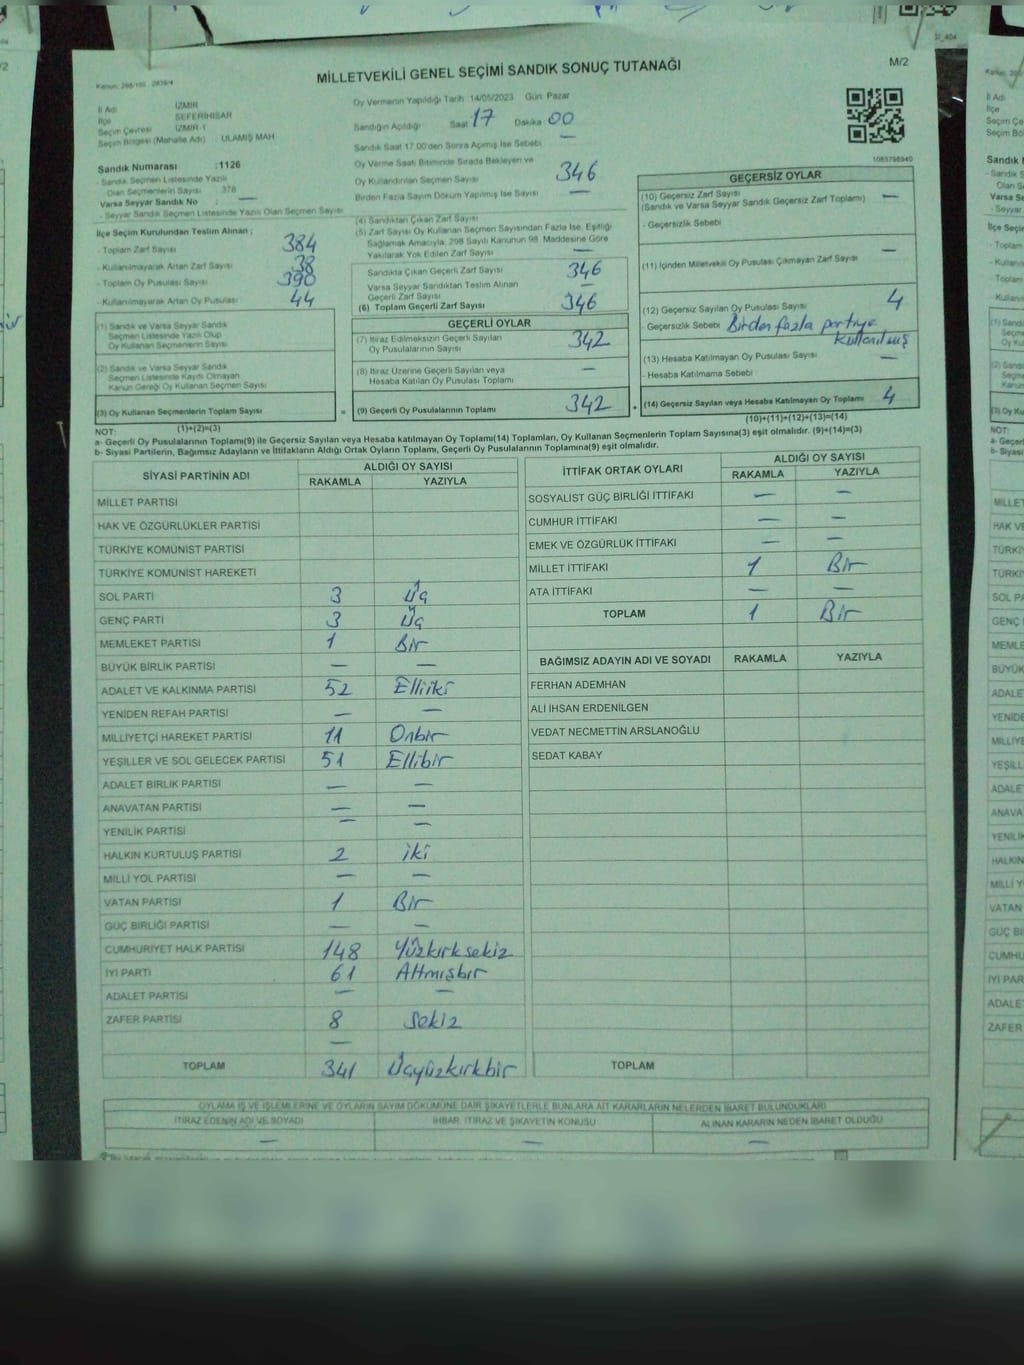 MİLLETVEKİLİ GENEL SEÇİMİ SANDIK SONUÇ TUTANAĞI
M/2
İl Adı İZMİR
İlçe SEFERİHİSAR
Seçim Çevresi İZMİR-1
Seçim Bölgesi (Mahalle Adı) : ULAMIŞ MAH
Sandık Numarası :1126
- Sandık Seçmen Listesinde Yazılı
Olan Seçmenlerin Sayısı 378
Varsa Seyyar Sandık No : —
- Seyyar Sandık Seçmen Listesinde Yazılı Olan Seçmen Sayısı
İlçe Seçim Kurulundan Teslim Alınan ;
- Toplam Zarf Sayısı 384
- Kullanılmayarak Artan Zarf Sayısı 38
- Toplam Oy Pusulası Sayısı 390
- Kullanılmayarak Artan Oy Pusulası 44
(1) Sandık ve Varsa Seyyar Sandık
Seçmen Listesinde Yazılı Olup
Oy Kullanan Seçmenlerin Sayısı
(2) Sandık ve Varsa Seyyar Sandık
Seçmen Listesinde Kaydı Olmayan
Kanun Gereği Oy Kullanan Seçmen Sayısı
(3) Oy Kullanan Seçmenlerin Toplam Sayısı
(1)+(2)=(3)
Oy Vermenin Yapıldığı Tarih 14/05/2023 Gün: Pazar
Sandığın Açıldığı Saat 17 Dakika 00
Sandık Saat 17.00'den Sonra Açılmış İse Sebebi —
Oy Verme Saati Bitiminde Sırada Bekleyen ve
Oy Kullandırılan Seçmen Sayısı 346
Birden Fazla Sayım Döküm Yapılmış İse Sayısı —
(4) Sandıktan Çıkan Zarf Sayısı
(5) Zarf Sayısı Oy Kullanan Seçmen Sayısından Fazla İse, Eşitliği
Sağlamak Amacıyla, 298 Sayılı Kanunun 98. Maddesine Göre
Yakılarak Yok Edilen Zarf Sayısı —
Sandıkta Çıkan Geçerli Zarf Sayısı 346
Varsa Seyyar Sandıktan Teslim Alınan
Geçerli Zarf Sayısı —
(6) Toplam Geçerli Zarf Sayısı 346
GEÇERLİ OYLAR
(7) İtiraz Edilmeksizin Geçerli Sayılan
Oy Pusulalarının Sayısı 342
(8) İtiraz Üzerine Geçerli Sayılan veya
Hesaba Katılan Oy Pusulası Toplamı —
= (9) Geçerli Oy Pusulalarının Toplamı 342
1085798940
GEÇERSİZ OYLAR
(10) Geçersiz Zarf Sayısı —
(Sandık ve Varsa Seyyar Sandık Geçersiz Zarf Toplamı)
- Geçersizlik Sebebi
(11) İçinden Milletvekili Oy Pusulası Çıkmayan Zarf Sayısı —
(12) Geçersiz Sayılan Oy Pusulası Sayısı 4
- Geçersizlik Sebebi Birden fazla partiye
kullanılmış
(13) Hesaba Katılmayan Oy Pusulası Sayısı —
- Hesaba Katılmama Sebebi
+ (14) Geçersiz Sayılan veya Hesaba Katılmayan Oy Toplamı 4
(10)+(11)+(12)+(13)=(14)
NOT:
a- Geçerli Oy Pusulalarının Toplamı(9) ile Geçersiz Sayılan veya Hesaba katılmayan Oy Toplamı(14) Toplamları, Oy Kullanan Seçmenlerin Toplam Sayısına(3) eşit olmalıdır. (9)+(14)=(3)
b- Siyasi Partilerin, Bağımsız Adayların ve İttifakların Aldığı Oyların Toplamı, Geçerli Oy Pusulalarının Toplamına(9) eşit olmalıdır.
SİYASİ PARTİNİN ADI ALDIĞI OY SAYISI
RAKAMLA YAZIYLA
MİLLET PARTİSİ
HAK VE ÖZGÜRLÜKLER PARTİSİ
TÜRKİYE KOMÜNİST PARTİSİ
TÜRKİYE KOMÜNİST HAREKETİ
SOL PARTİ 3 Üç
GENÇ PARTİ 3 Üç
MEMLEKET PARTİSİ 1 Bir
BÜYÜK BİRLİK PARTİSİ — —
ADALET VE KALKINMA PARTİSİ 52 Elliiki
YENİDEN REFAH PARTİSİ — —
MİLLİYETÇİ HAREKET PARTİSİ 11 Onbir
YEŞİLLER VE SOL GELECEK PARTİSİ 51 Ellibir
ADALET BİRLİK PARTİSİ — —
ANAVATAN PARTİSİ — —
YENİLİK PARTİSİ — —
HALKIN KURTULUŞ PARTİSİ 2 iki
MİLLİ YOL PARTİSİ — —
VATAN PARTİSİ 1 Bir
GÜÇ BİRLİĞİ PARTİSİ — —
CUMHURİYET HALK PARTİSİ 148 Yüzkırksekiz
İYİ PARTİ 61 Altmışbir
ADALET PARTİSİ — —
ZAFER PARTİSİ 8 Sekiz
—
TOPLAM 341 Üçyüzkırkbir
İTTİFAK ORTAK OYLARI ALDIĞI OY SAYISI
RAKAMLA YAZIYLA
SOSYALİST GÜÇ BİRLİĞİ İTTİFAKI — —
CUMHUR İTTİFAKI — —
EMEK VE ÖZGÜRLÜK İTTİFAKI — —
MİLLET İTTİFAKI 1 Bir
ATA İTTİFAKI — —
TOPLAM 1 Bir
BAĞIMSIZ ADAYIN ADI VE SOYADI RAKAMLA YAZIYLA
FERHAN ADEMHAN
ALİ İHSAN ERDENİLGEN
VEDAT NECMETTİN ARSLANOĞLU
SEDAT KABAY
TOPLAM
OYLAMA İŞ VE İŞLEMLERİNE VE OYLARIN SAYIM DÖKÜMÜNE DAİR ŞİKAYETLERLE BUNLARA AİT KARARLARIN NELERDEN İBARET BULUNDUKLARI
İTİRAZ EDENİN ADI VE SOYADI İHBAR, İTİRAZ VE ŞİKAYETİN KONUSU ALINAN KARARIN NEDEN İBARET OLDUĞU
— — —